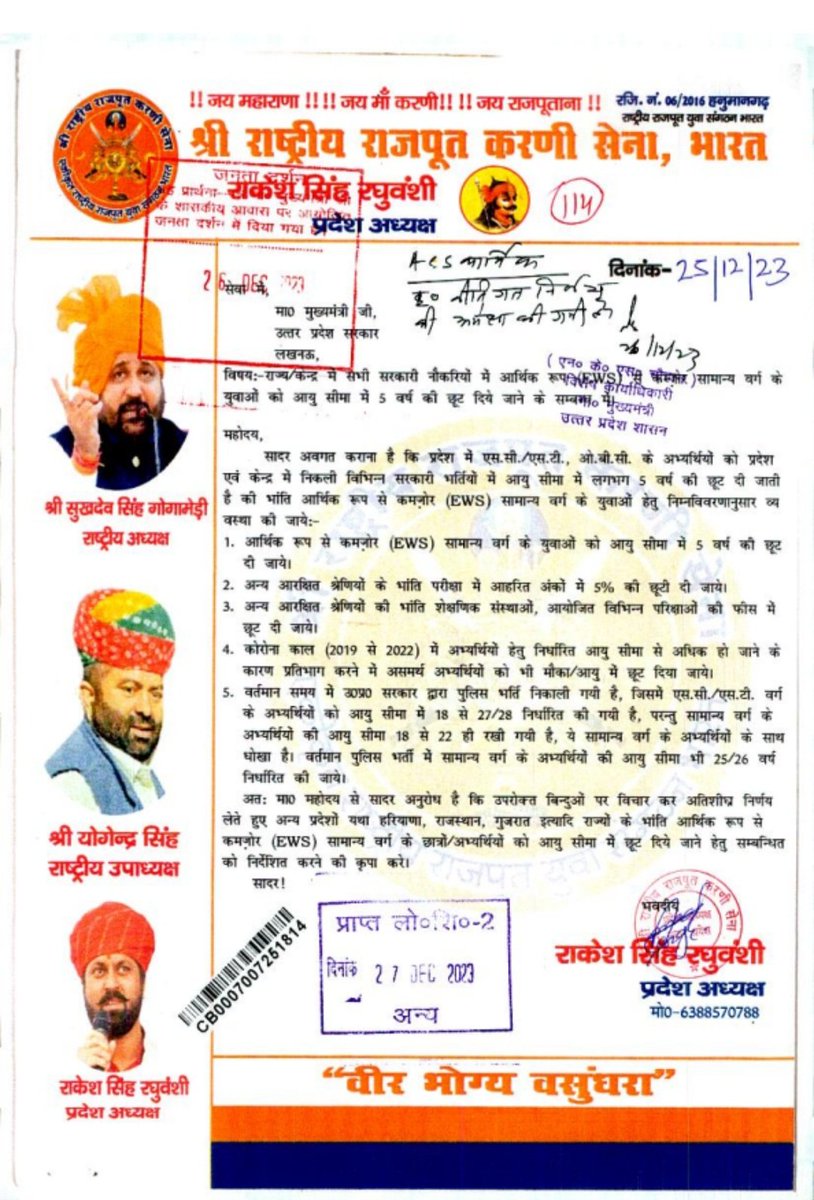 !! जय महाराणा !! !! जय माँ करणी!! !! जय राजपूताना !!
रजि. नं. 06/2016 हनुमानगढ़
राष्ट्रीय राजपूत युवा संगठन भारत
श्री राष्ट्रीय राजपूत करणी सेना, भारत
श्री राष्ट्रीय राजपूत करणी सेना
राकेश सिंह रघुवंशी
प्रदेश अध्यक्ष
114
जनता दर्शन
शासकीय आवास पर
जनता दर्शन में दिया गया
26 DEC 2023
दिनांक- 25/12/23
ACS कार्मिक
कृ० नीतिगत निर्णय
की अपेक्षा की गयी है
26/12/23
सेवा में,
मा0 मुख्यमंत्री जी,
उत्तर प्रदेश सरकार
लखनऊ,
विषयः- राज्य/केन्द्र में सभी सरकारी नौकरियों में आर्थिक रूप (EWS) से कमजोर सामान्य वर्ग के
युवाओं को आयु सीमा में 5 वर्ष की छूट दिये जाने के सम्बन्ध में।
विशेष कार्याधिकारी
मा० मुख्यमंत्री
उत्तर प्रदेश शासन
महोदय,
सादर अवगत कराना है कि प्रदेश में एस.सी./एस.टी., ओ.बी.सी. के अभ्यर्थियों को प्रदेश
एवं केन्द्र में निकली विभिन्न सरकारी भर्तियों में आयु सीमा में लगभग 5 वर्ष की छूट दी जाती
है की भांति आर्थिक रूप से कमज़ोर (EWS) सामान्य वर्ग के युवाओं हेतु निम्नविवरणानुसार व्य
वस्था की जाये:-
1. आर्थिक रूप से कमज़ोर (EWS) सामान्य वर्ग के युवाओं को आयु सीमा में 5 वर्ष की छूट
दी जाये।
2. अन्य आरक्षित श्रेणियों के भांति परीक्षा में आहरित अंकों में 5% की छूटी दी जाये।
3. अन्य आरक्षित श्रेणियों की भांति शेक्षणिक संस्थाओं, आयोजित विभिन्न परिक्षाओं की फीस में
छूट दी जाये।
4. कोरोना काल (2019 से 2022) में अभ्यर्थियों हेतु निर्धारित आयु सीमा से अधिक हो जाने के
कारण प्रतिभाग करने में असमर्थ अभ्यर्थियों को भी मौका/आयु में छूट दिया जाये।
5. वर्तमान समय में उ0प्र0 सरकार द्वारा पुलिस भर्ति निकाली गयी है, जिसमें एस.सी./एस.टी. वर्ग
के अभ्यर्थियों को आयु सीमा में 18 से 27/28 निर्धारित की गयी है, परन्तु सामान्य वर्ग के
अभ्यर्थियों की आयु सीमा 18 से 22 ही रखी गयी है, ये सामान्य वर्ग के अभ्यर्थियों के साथ
धोखा है। वर्तमान पुलिस भर्ती में सामान्य वर्ग के अभ्यर्थियों की आयु सीमा भी 25/26 वर्ष
निर्धारित की जाये।
अतः मा0 महोदय से सादर अनुरोध है कि उपरोक्त बिन्दुओं पर विचार कर अतिशीघ्र निर्णय
लेते हुए अन्य प्रदेशों यथा हरियाणा, राजस्थान, गुजरात इत्यादि राज्यों के भांति आर्थिक रूप से
कमज़ोर (EWS) सामान्य वर्ग के छात्रों/अभ्यर्थियों को आयु सीमा में छूट दिये जाने हेतु सम्बन्धित
को निर्देशित करने की कृपा करे।
सादर!
श्री सुखदेव सिंह गोगामेड़ी
राष्ट्रीय अध्यक्ष
श्री योगेन्द्र सिंह
राष्ट्रीय उपाध्यक्ष
राकेश सिंह रघुवंशी
प्रदेश अध्यक्ष
CB0007007251814
प्राप्त लो०शि०-2
दिनांक 27 DEC 2023
अन्य
भवदीय
राकेश सिंह रघुवंशी
प्रदेश अध्यक्ष
मो0-6388570788
“वीर भोग्य वसुंधरा”